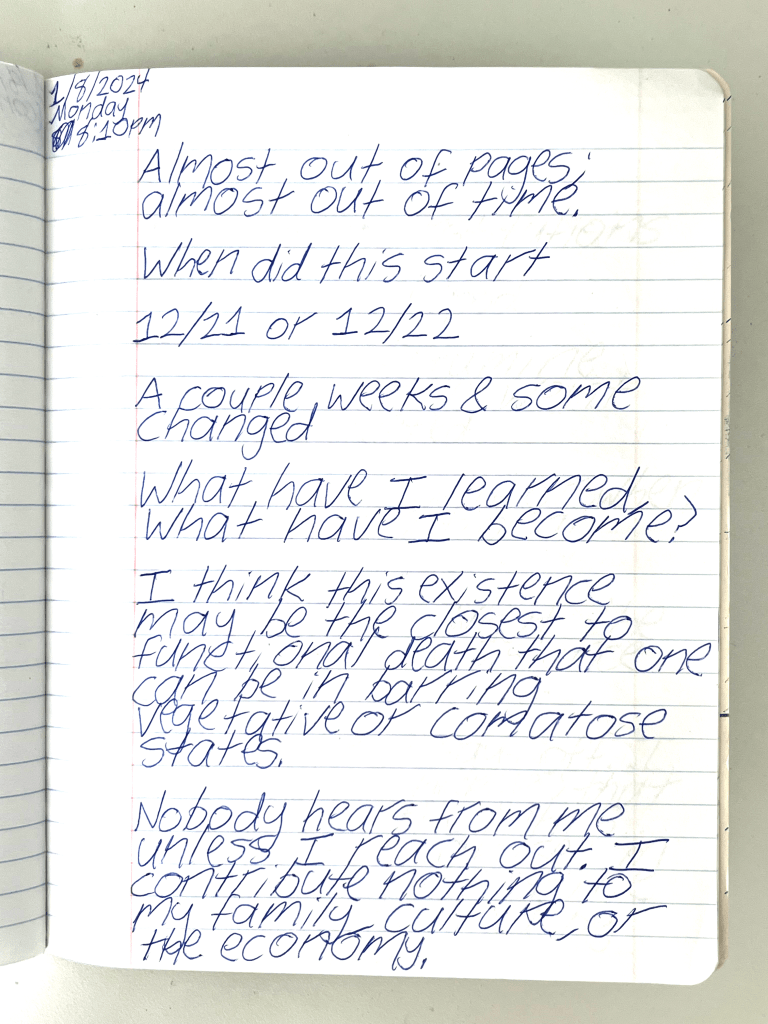 1/8/2024
Monday
8:10pm
Almost out of pages;
almost out of time.
When did this start
12/21 or 12/22
A couple weeks & some
changed
What have I learned,
What have I become?
I think this existence
may be the closest to
functional death that one
can be in barring
vegetative or comatose
states.
Nobody hears from me
unless I reach out. I
contribute nothing to
my family, culture, or
the economy.